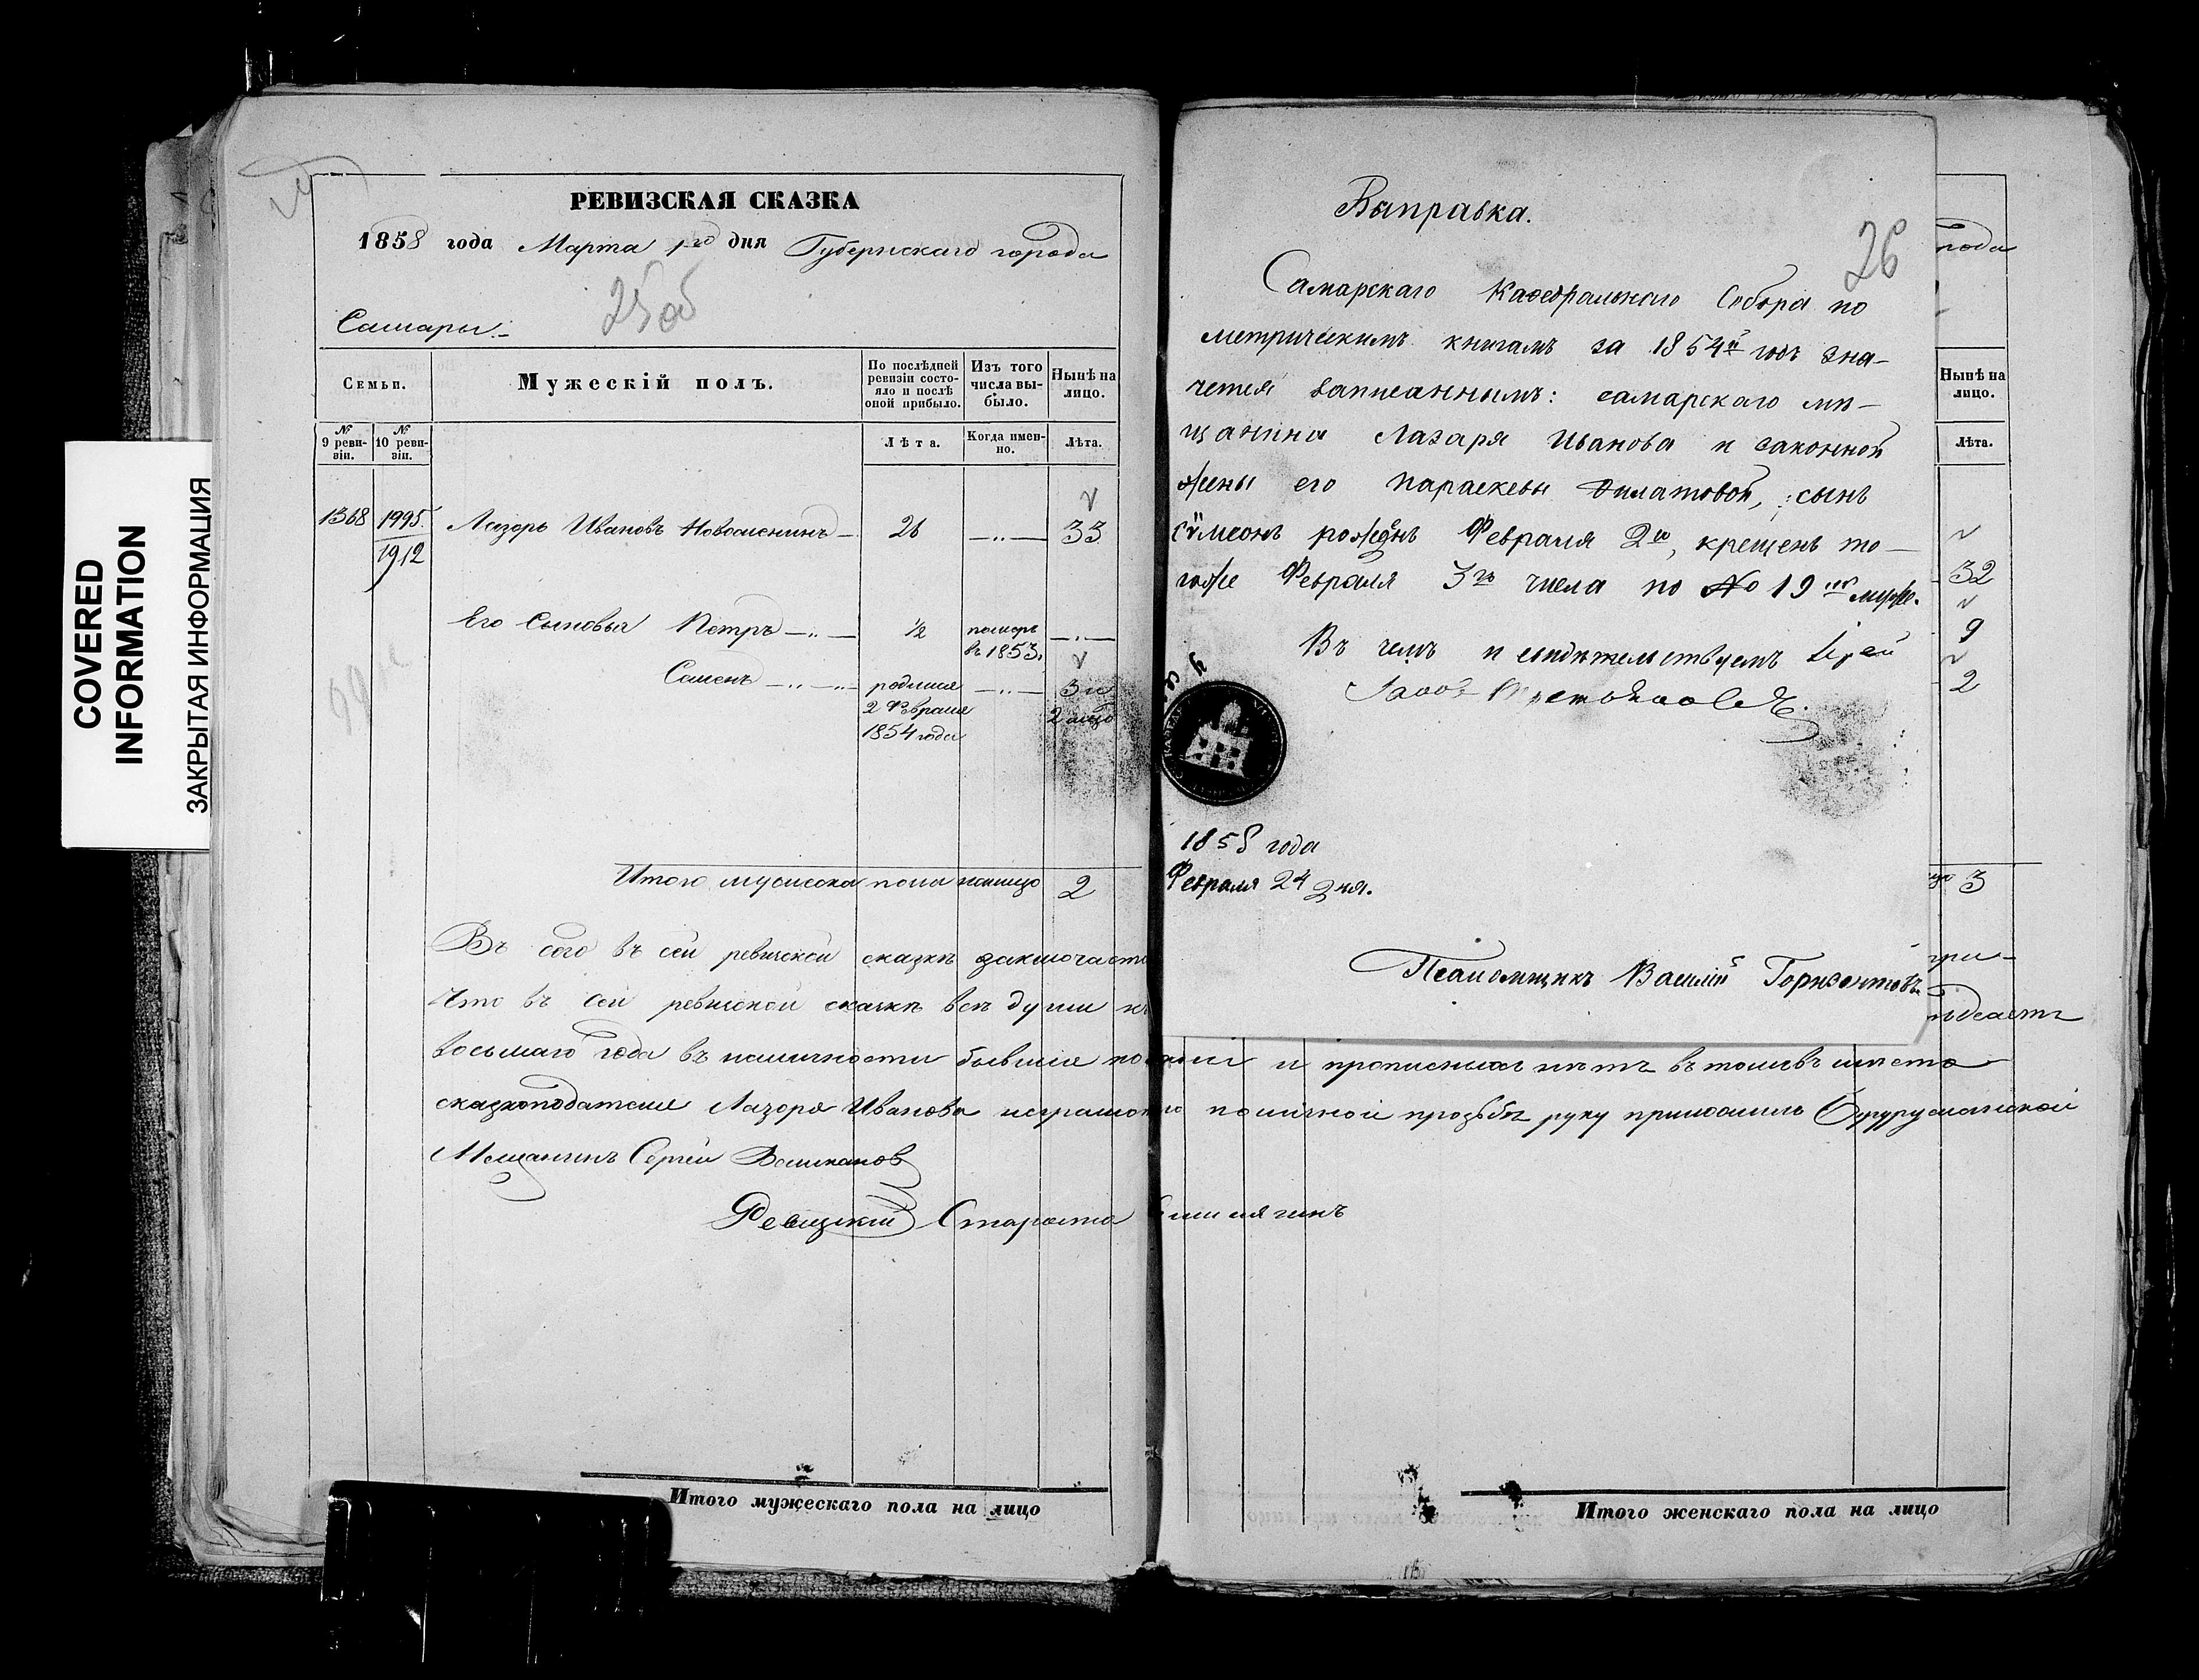 COVERED
INFORMATION
ЗАКРЫТАЯ ИНФОРМАЦИЯ
РЕВИЗСКАЯ СКАЗКА
1858 года Марта 1го дня Губернскаго города
25об
Самары.
Семьи.
Мужескій полъ.
По послѣдней ревизіи состояло и послѣ оной прибыло.
Изъ того числа выбыло.
Нынѣ на лицо.
№ 9 ревизіи.
№ 10 ревизіи.
Лѣта.
Когда именно.
Лѣта.
1368 1995. Лазорь Ивановъ 26 33
1912
Его Сыновья Петръ ½ померъ въ 1853.
Семенъ родился 2 Февраля 1854 года 3 и 2 лицо
Итого мужеска пола налицо 2
Въ сей ревиской сказкѣ
Что въ сей ревиской сказкѣ всѣ души
восьмаго года въ наличности бывшія и прописныхъ нѣтъ въ томъ вмѣсто
сказкоподателя Лазоря Иванова личной прозьбы руку приложилъ
Мещанинъ Сергей
Ревизкий Староста
Итого мужескаго пола на лицо
Выправка.
26
Самарскаго Каѳедральнаго Собора по
метрическимъ книгамъ за 1854й годъ зна-
чется записаннымъ: самарскаго мѣ-
щанина Лазаря Иванова и законной
жены его Параскевы Филатовой, сынъ
Сѷмеонъ рожденъ Февраля 2го, крещенъ то-
гоже Февраля 3го числа по № 19 муж.
Въ чемъ и свидѣтельствуемъ Іерей
1858 года
Февраля 24 дня.
Псаломщикъ Василій Горизонтовъ
рода
Нынѣ на лицо.
Лѣта.
32
9
2
3
Итого женскаго пола на лицо